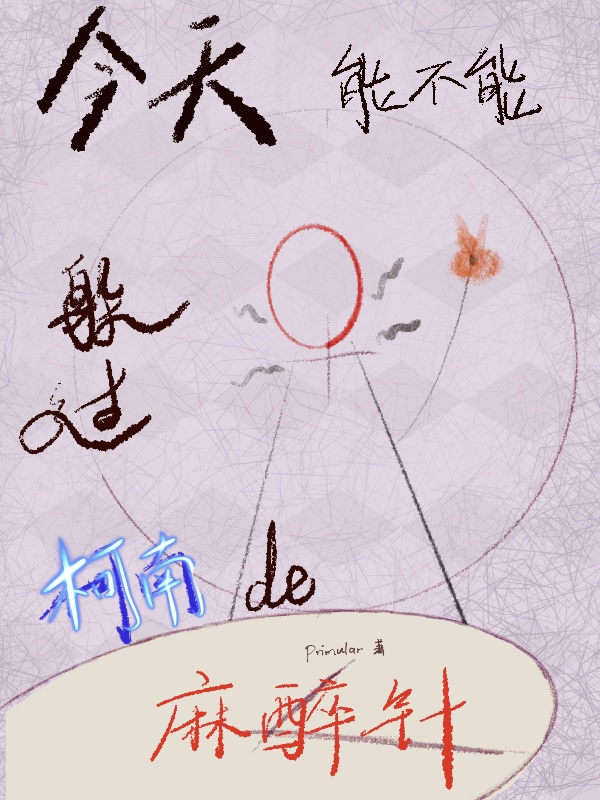 今天
能不能
躲过
柯南
de
Primular 著
麻醉针